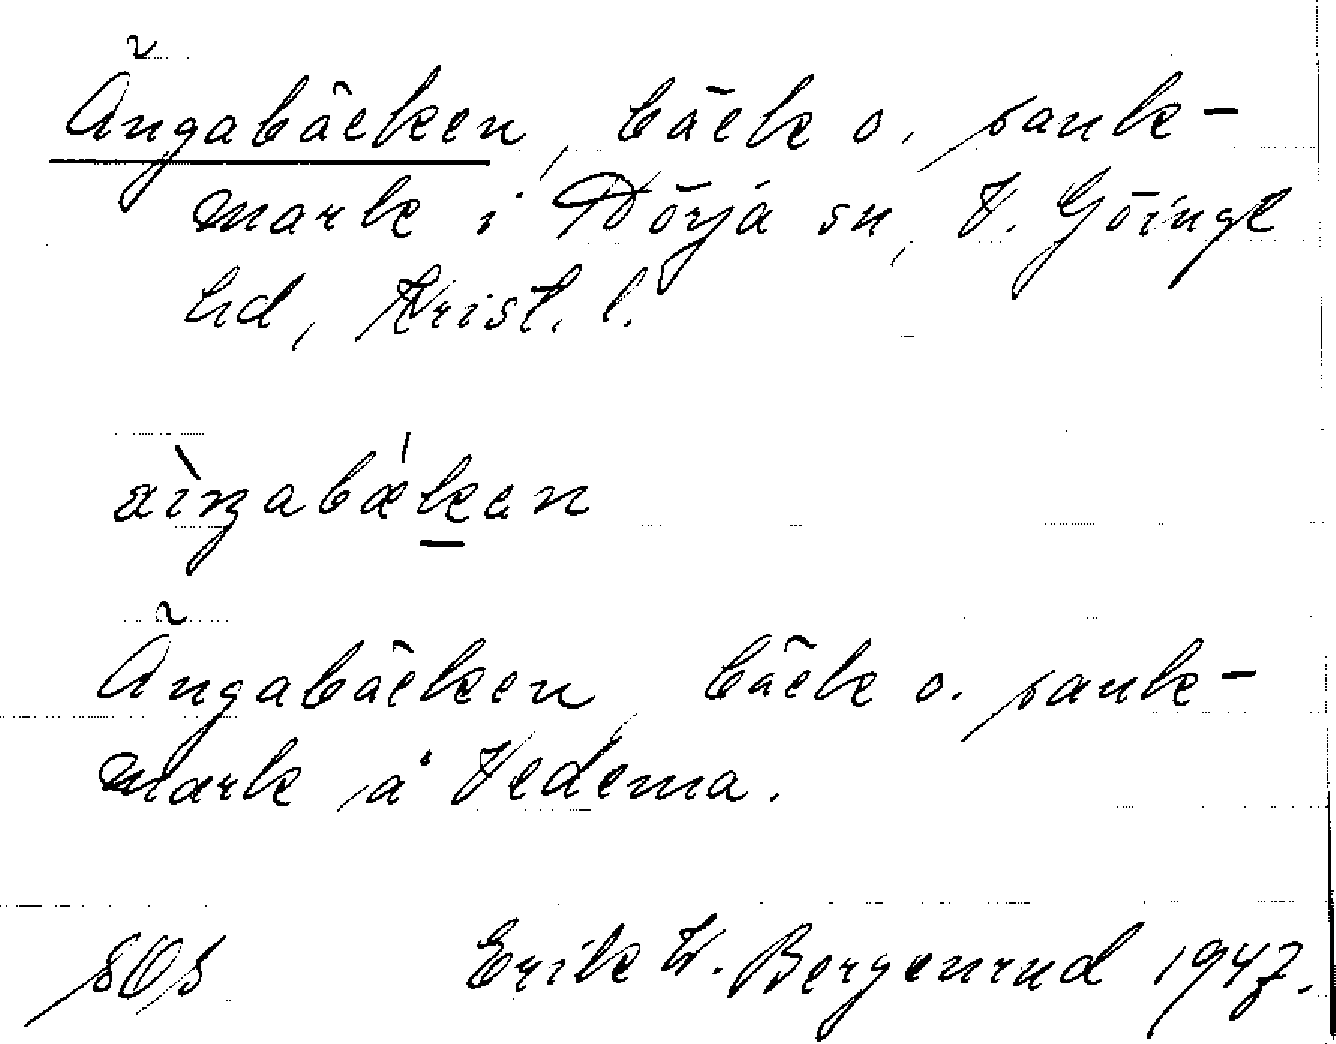 Ängabäcken, bäck o. sank-
mark i Nörja sn, V. Göinge
hd, Krist. l.
äŋabækən
Ängabäcken, bäck o. sank-
mark å Vedema.
SOS Erik W. Bergenrud 1947.